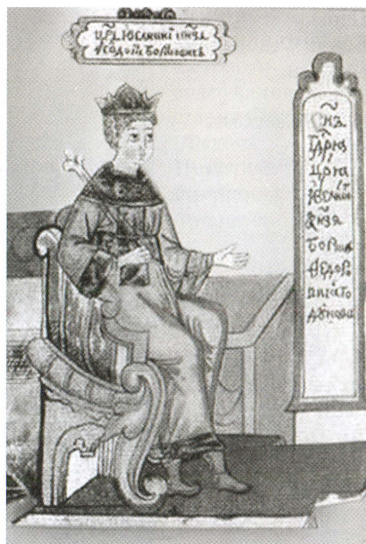 Црь ївеликиї кнзь
Ѳеодоръ Борисовичь
Снъ
Гдрѧ
Црѧ
ївелико
Кнзѧ
Бориса
Ѳедоро
вича го
дꙋнова